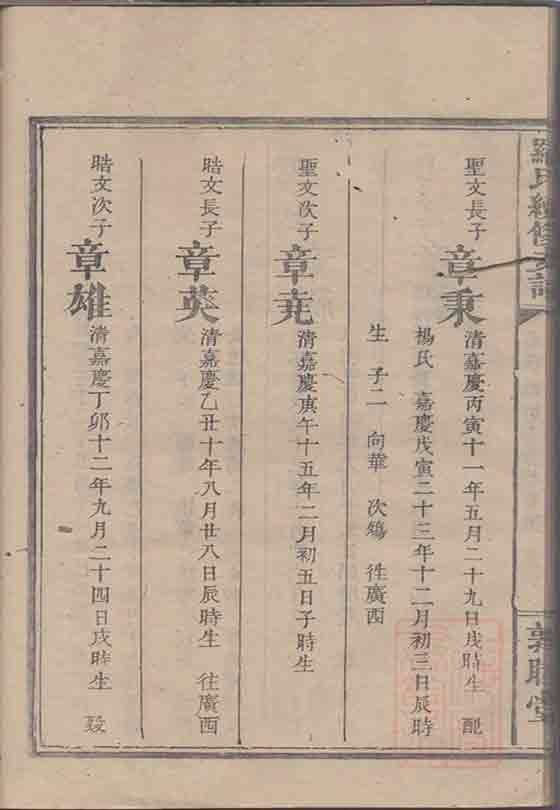 羅氏續修支譜
聖文長子 章秉 清嘉慶丙寅十一年五月二十九日戌時生 配
楊氏 嘉慶戊寅二十三年十二月初三日辰時
生 子二 向華 次 徃廣西
聖文次子 章 清嘉慶庚午十五年二月初五日子時生
晧文長子 章英 清嘉慶乙丑十年八月廿八日辰時生 往廣西
晧文次子 章雄 清嘉慶丁卯十二年九月二十四日戌時生 歿
敦睦堂